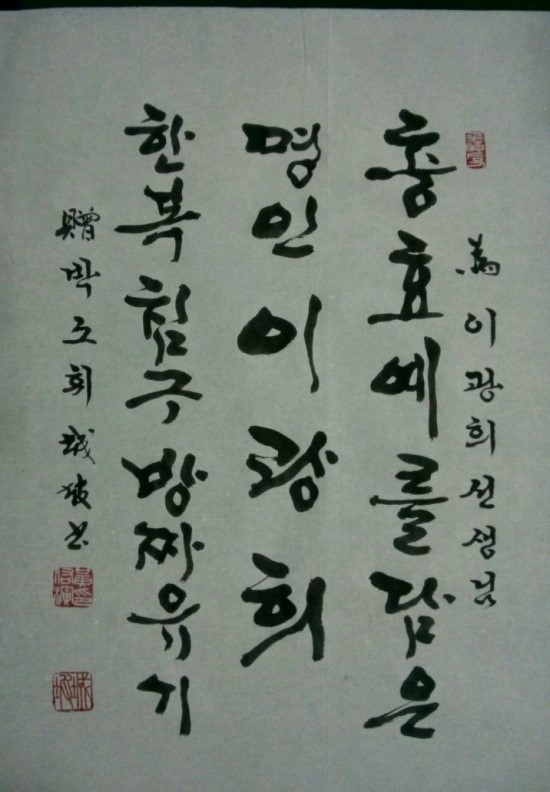 為 이광희선생님
충효예를담은
명인이광희
한복침구방짜유기
贈 박노회 書